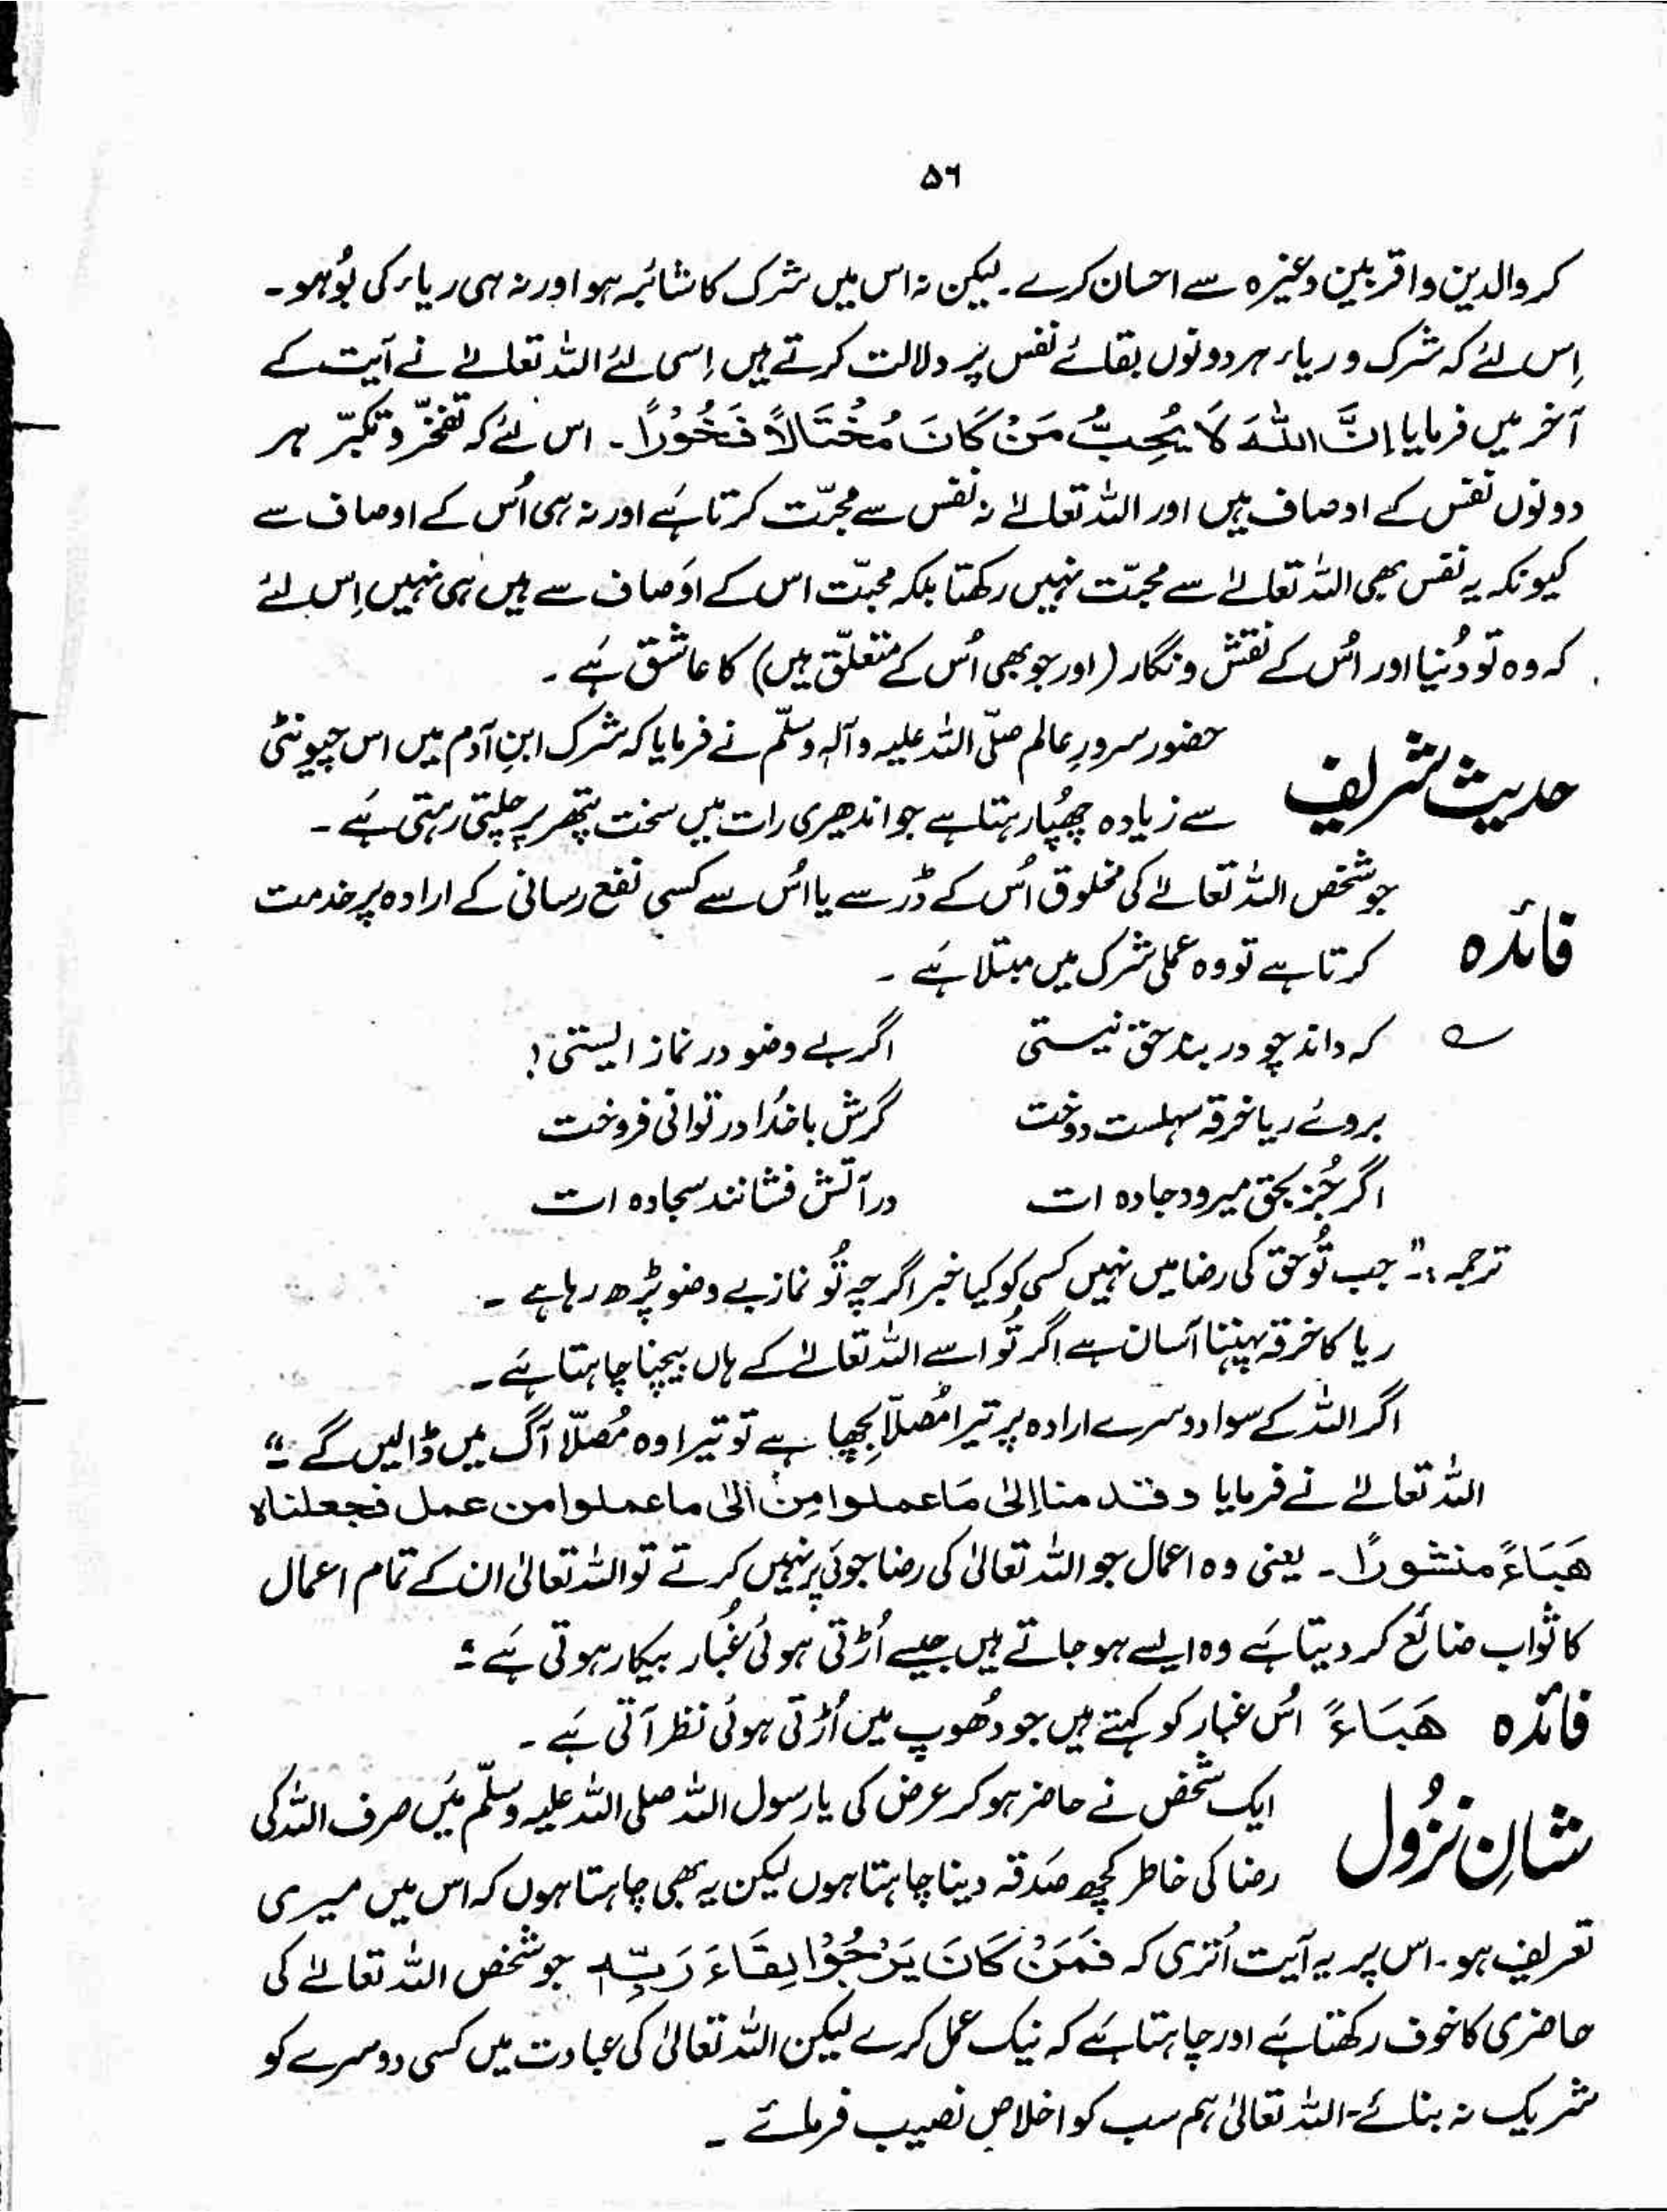 ۵۶
کر والدین و اقربین وغیرہ سے احسان کرے۔ لیکن نہ اس میں شرک کا شائبہ ہو اور نہ ہی ریاء کی بُو ہو۔
اِس لئے کہ شرک و ریاء ہر دونوں بقائے نفس پر دلالت کرتے ہیں اِسی لئے اللہ تعالےٰ نے آیت کے
آخر میں فرمایا اِنَّ اللّٰہَ لَا یُحِبُّ مَنْ کَانَ مُخْتَالًا فَخُوْرًا۔ اس لئے کہ تفخّر و تکبّر ہر
دونوں نفس کے اوصاف ہیں اور اللہ تعالےٰ نہ نفس سے محبّت کرتا ہَے اور نہ ہی اُس کے اوصاف سے
کیونکہ یہ نفس بھی اللہ تعالےٰ سے محبّت نہیں رکھتا بلکہ محبّت اس کے اوَصاف سے ہیں ہی نہیں اِس لئے
کہ وہ تو دُنیا اور اُس کے نقش و نگار (اور جو بھی اُس کے متعلّق ہیں) کا عاشق ہَے۔
حدیث شریف حضور سرورِ عالم صلّی اللہ علیہ و آلہٖ وسلّم نے فرمایا کہ شرک ابنِ آدم میں اس چیونٹی
سے زیادہ چھُپا رہتا ہے جو اندھیری رات میں سخت پتھر پر چلتی رہتی ہَے۔
فائدہ جو شخص اللہ تعالےٰ کی مخلوق اُس کے ڈر سے یا اُس سے کسی نفع رسانی کے ارادہ پر خدمت
کرتا ہے تو وہ عملی شرک میں مبتلا ہَے۔
؎ کہ داند چو در بند حق نیستی اگر بے وضو در نماز ایستی!
بروئے ریا خرقہ سہلست دوخت گرش با خُدا در توانی فروخت
اگر جُز بحق میرود جادہ ات در آتش فشانند سجادہ ات
ترجمہ:۔" جب تُو حق کی رضا میں نہیں کسی کو کیا خبر اگرچہ تُو نماز بے وضو پڑھ رہا ہے۔
ریا کا خرقہ پہننا آسان ہے اگر تُو اسے اللہ تعالےٰ کے ہاں بیچنا چاہتا ہَے۔
اگر اللہ کے سوا دوسرے ارادہ پر تیرا مُصلّا بِچھا ہے تو تیرا وہ مُصلّا آگ میں ڈالیں گے۔"
اللہ تعالےٰ نے فرمایا وقد منا اِلیٰ مَا عملوا مِنْ الیٰ ما عملوا من عمل فجعلناہ
ھَبَاءً منشورًا۔ یعنی وہ اعمال جو اللہ تعالیٰ کی رضا جوئی پر نہیں کرتے تو اللہ تعالیٰ ان کے تمام اعمال
کا ثواب ضائع کر دیتا ہَے وہ ایسے ہو جاتے ہیں جیسے اُڑتی ہوئی غُبار بیکار ہوتی ہَے۔"
فائدہ ھَبَاءً اُس غبار کو کہتے ہیں جو دُھوپ میں اُڑتی ہوئی نظر آتی ہَے۔
شانِ نزُول ایک شخص نے حاضر ہو کر عرض کی یا رسول اللہ صلی اللہ علیہ وسلّم مَیں صرف اللہ کی
رضا کی خاطر کچھ صَدقہ دینا چاہتا ہوں لیکن یہ بھی چاہتا ہوں کہ اس میں میری
تعریف ہو۔ اس پر یہ آیت اُتری کہ فَمَنْ کَانَ یَرْجُوْا لِقَاءَ رَبِّہٖ جو شخص اللہ تعالےٰ کی
حاضری کا خوف رکھتا ہَے اور چاہتا ہَے کہ نیک عمل کرے لیکن اللہ تعالیٰ کی عبادت میں کسی دوسرے کو
شریک نہ بنائے۔ اللہ تعالیٰ ہم سب کو اخلاص نصیب فرمائے۔